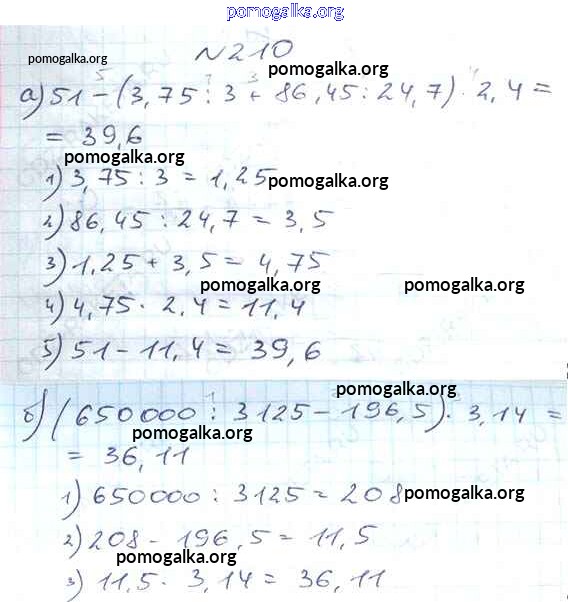 pomogalka.org
№210
pomogalka.org
pomogalka.org
5 1 3 2 4
а) 51 - (3,75 : 3 + 86,45 : 24,7) · 2,4 =
= 39,6
pomogalka.org
1) 3,75 : 3 = 1,25
pomogalka.org
2) 86,45 : 24,7 = 3,5
3) 1,25 + 3,5 = 4,75
pomogalka.org
pomogalka.org
4) 4,75 · 2,4 = 11,4
5) 51 - 11,4 = 39,6
pomogalka.org
б) (650000 : 3125 - 196,5) · 3,14 =
pomogalka.org
= 36,11
1) 650000 : 3125 = 208
pomogalka.org
2) 208 - 196,5 = 11,5
pomogalka.org
3) 11,5 · 3,14 = 36,11